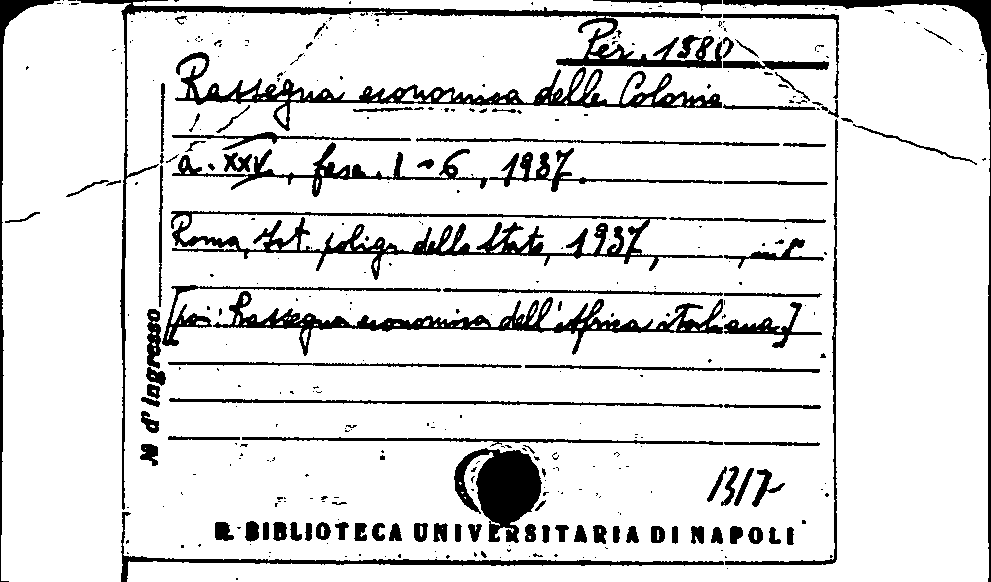 Per. 1580
Rassegna economica delle Colonie
a. XXV, fasc. 1-6, 1937.
Roma, Ist. polig. dello Stato, 1937, , in 8°
[poi: Rassegna economica dell'Africa italiana]
N d'Ingresso
R. BIBLIOTECA UNIVERSITARIA DI NAPOLI